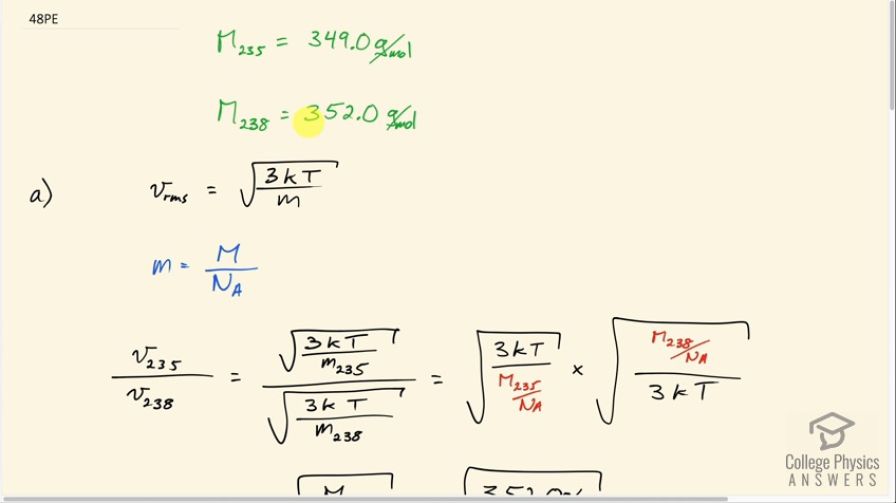 48PE
M₂₃₅ = 349.0 g/mol
M₂₃₈ = 352.0 g/mol
a) v_rms = √(3kT/m)
m = M/N_A
v₂₃₅/v₂₃₈ = √(3kT/m₂₃₅) / √(3kT/m₂₃₈) = √(3kT/(M₂₃₅/N_A)) × √((M₂₃₈/N_A)/3kT)
College Physics
ANSWERS